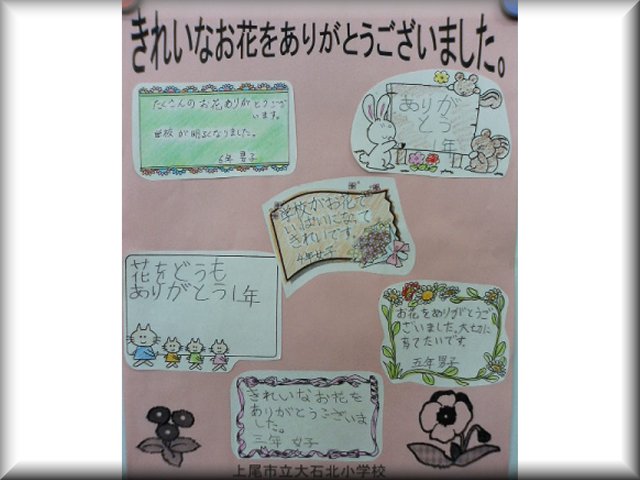 きれいなお花をありがとうございました。
たくさんのお花ありがとうござ
います。
学校が明るくなりました。
6年 男子
ありが
とう
1年
学校がお花で
いっぱいになって
きれいです。
4年女子
花をどうも
ありがとう1年
お花をありがとうご
ざいました。大切に
育てたいです。
五年 男子
きれいなお花を
ありがとうございま
した。
三年 女子
上尾市立大石北小学校